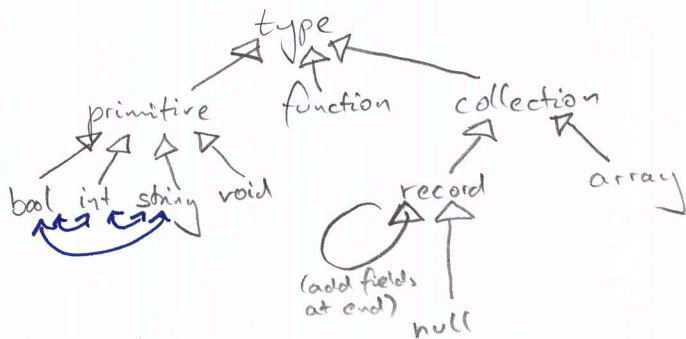 type
primitive
function
collection
bool int string void
record
array
(add fields
at end)
null